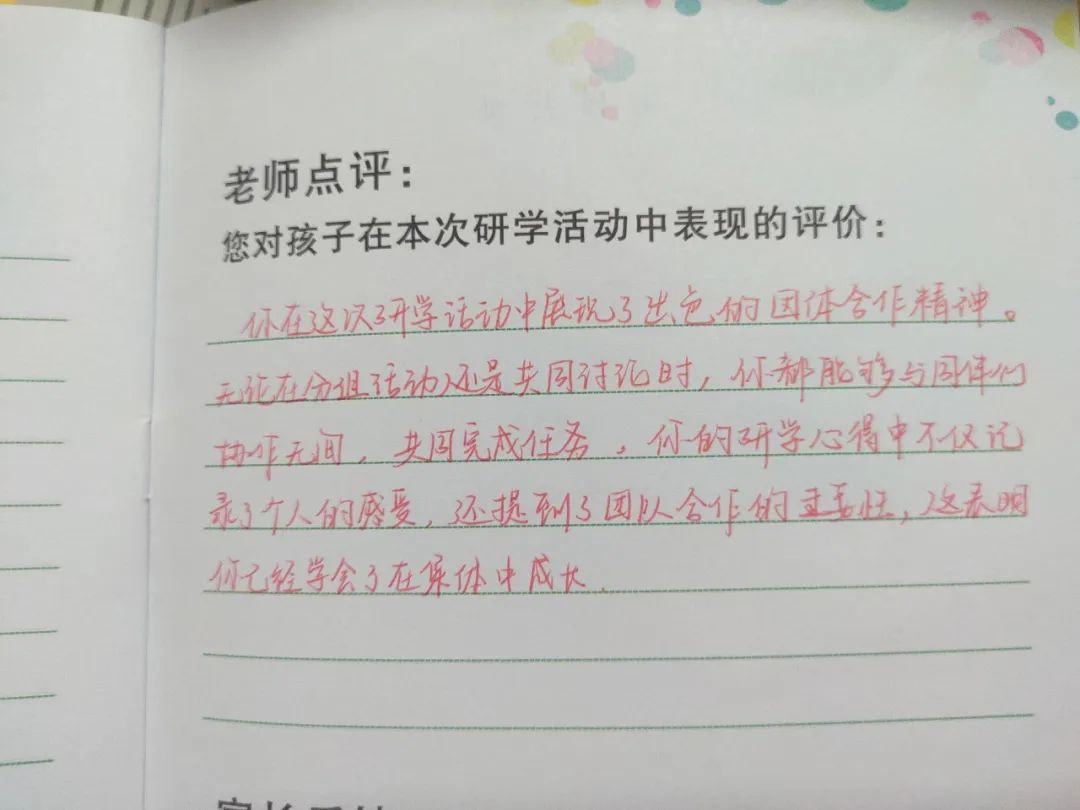 老师点评:
您对孩子在本次研学活动中表现的评价:
你在这次研学活动中展现了出色的团体合作精神。
无论在分组活动还是共同讨论时,你都能够与同伴们
协作无间,共同完成任务,你的研学心得中不仅记
录了个人的感受,还提到了团队合作的重要性,这表明
你已经学会了在集体中成长.